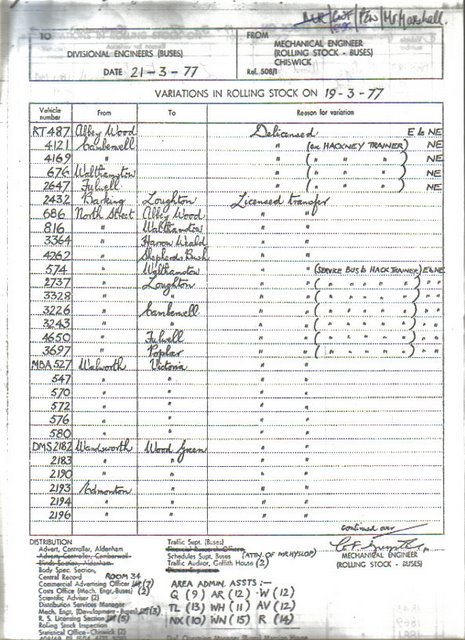 Mr Marshall
TO
DIVISIONAL ENGINEERS (BUSES)
DATE 21-3-77
FROM
MECHANICAL ENGINEER
(ROLLING STOCK - BUSES)
CHISWICK
Ref. 508/1
VARIATIONS IN ROLLING STOCK ON 19-3-77
Vehicle number From To Reason for variation
RT 487 Abbey Wood Delicensed E to NE
4121 Camberwell " (ex HACKNEY TRAINER) NE
4169 " " ( " " " ) NE
676 Walthamstow " ( " " " ) NE
2647 Fulwell " ( " " " ) NE
2432 Barking Loughton Licensed transfer
686 North Street Abbey Wood " "
816 " Walthamstow " "
3364 " Harrow Weald " "
4262 " Shepherds Bush " "
574 " Walthamstow " " (SERVICE BUS to HACK TRAINER) E to NE
2737 " Loughton " " ( " " " " " ) " "
3328 " " " " ( " " " " " ) " "
3226 " Camberwell " " ( " " " " " ) " "
3243 " " " " ( " " " " " ) " "
4650 " Fulwell " " ( " " " " " ) " "
3697 " Poplar " " ( " " " " " ) " "
MBA 527 Walworth Victoria " "
547 " " " "
570 " " " "
572 " " " "
576 " " " "
580 " " " "
DMS 2182 Wandsworth Wood Green " "
2183 " " " "
2190 " " " "
2193 Edmonton " " "
2194 " " " "
2196 " " " "
continued over
MECHANICAL ENGINEER
(ROLLING STOCK - BUSES)
DISTRIBUTION
Advert. Controller, Aldenham
Advert. Controller, Camberwell
Blinds Section, Aldenham
Body Spec. Section,
Central Record ROOM 34
Commercial Advertising Officer (7)
Costs Office (Mech. Engr. Buses) (2)
Scientific Adviser (2)
Distribution Services Manager
Mech. Engr. (Development - Buses) (3)
R. S. Licensing Section (5)
Rolling Stock Inspection
Statistical Office - Chiswick (2)
Traffic Supt. (Buses)
Schedules Supt. Buses
Traffic Auditor, Griffith House (2)
AREA ADMIN. ASSTS :-
Q (9) AR (12) W (12)
TL (13) WH (11) AV (12)
NX (10) WN (15) R (14)